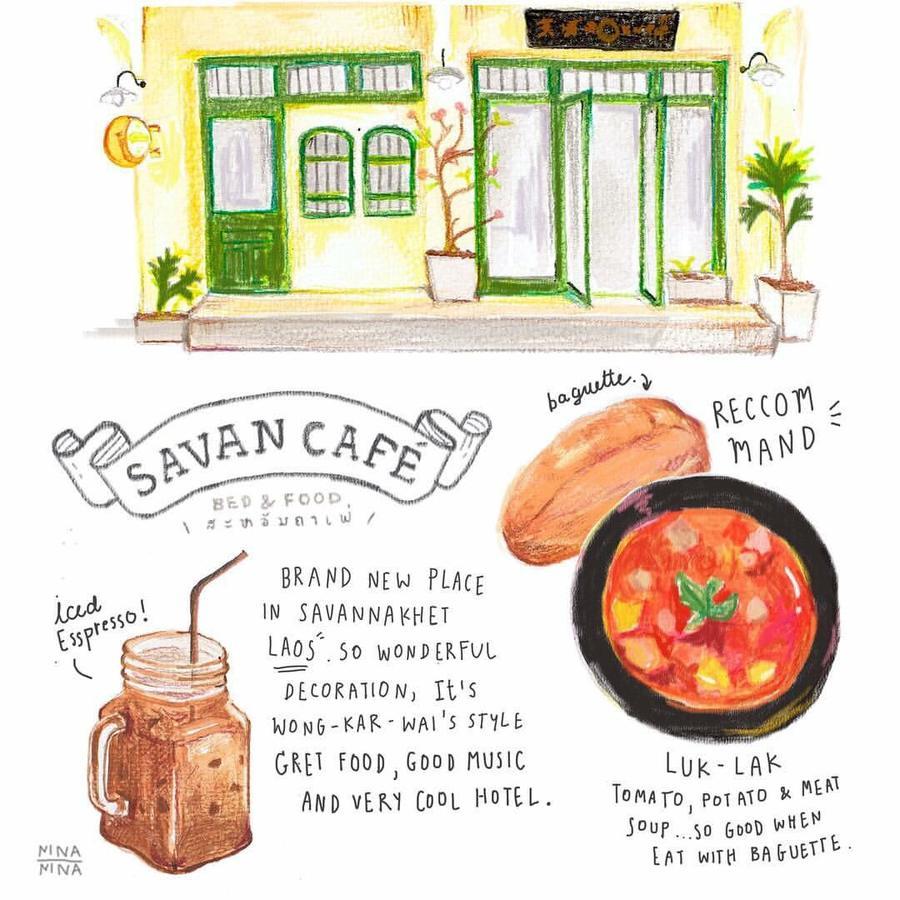 baguette.
RECCOM
MAND
SAVAN CAFÉ
BED & FOOD
สะหวันคาเฟ่
iced
Esspresso!
BRAND NEW PLACE
IN SAVANNAKHET
LAOS". SO WONDERFUL
DECORATION, It's
WONG-KAR-WAI'S STYLE
GRET FOOD, GOOD MUSIC
AND VERY COOL HOTEL.
LUK-LAK
TOMATO, POTATO & MEAT
SOUP...SO GOOD WHEN
EAT WITH BAGUETTE.
MINA
MINA